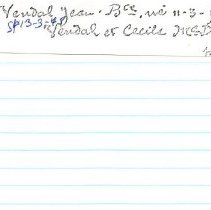 Vendal Jean-Bte, né 11-3-
Sp 13-3-
Vendal et Cecile McD